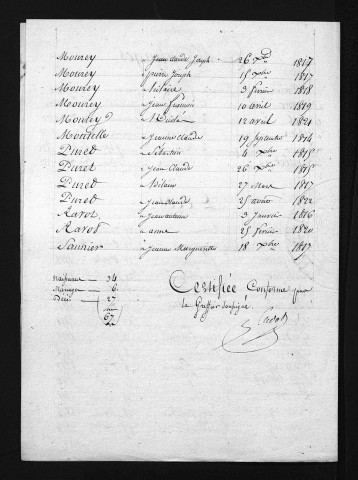 Mourey Jean Claude Joseph 26 Xbre 1817
Mourey Pierre Joseph 15 Xbre 1817
Mourey Hilaire 3 fevrier 1818
Mourey Jean François 10 avril 1819
Mourey Nicolas 12 avril 1821
Claude 19 septembre 1814
Duret Sébastien 4 Xbre 1815
Duret Jean Claude 26 1815
Duret Hilaire 27 Mars 1817
Duret 25 aout 1822
Ravot 3 Janvier 1816
Ravot anne 25 fevrier 1820
Saunier Jeanne Marguerite 18 Xbre 1817
naissance 34
Mariage 6
Décès 27
67
Certifiée Conforme par
le Greffier soussigné